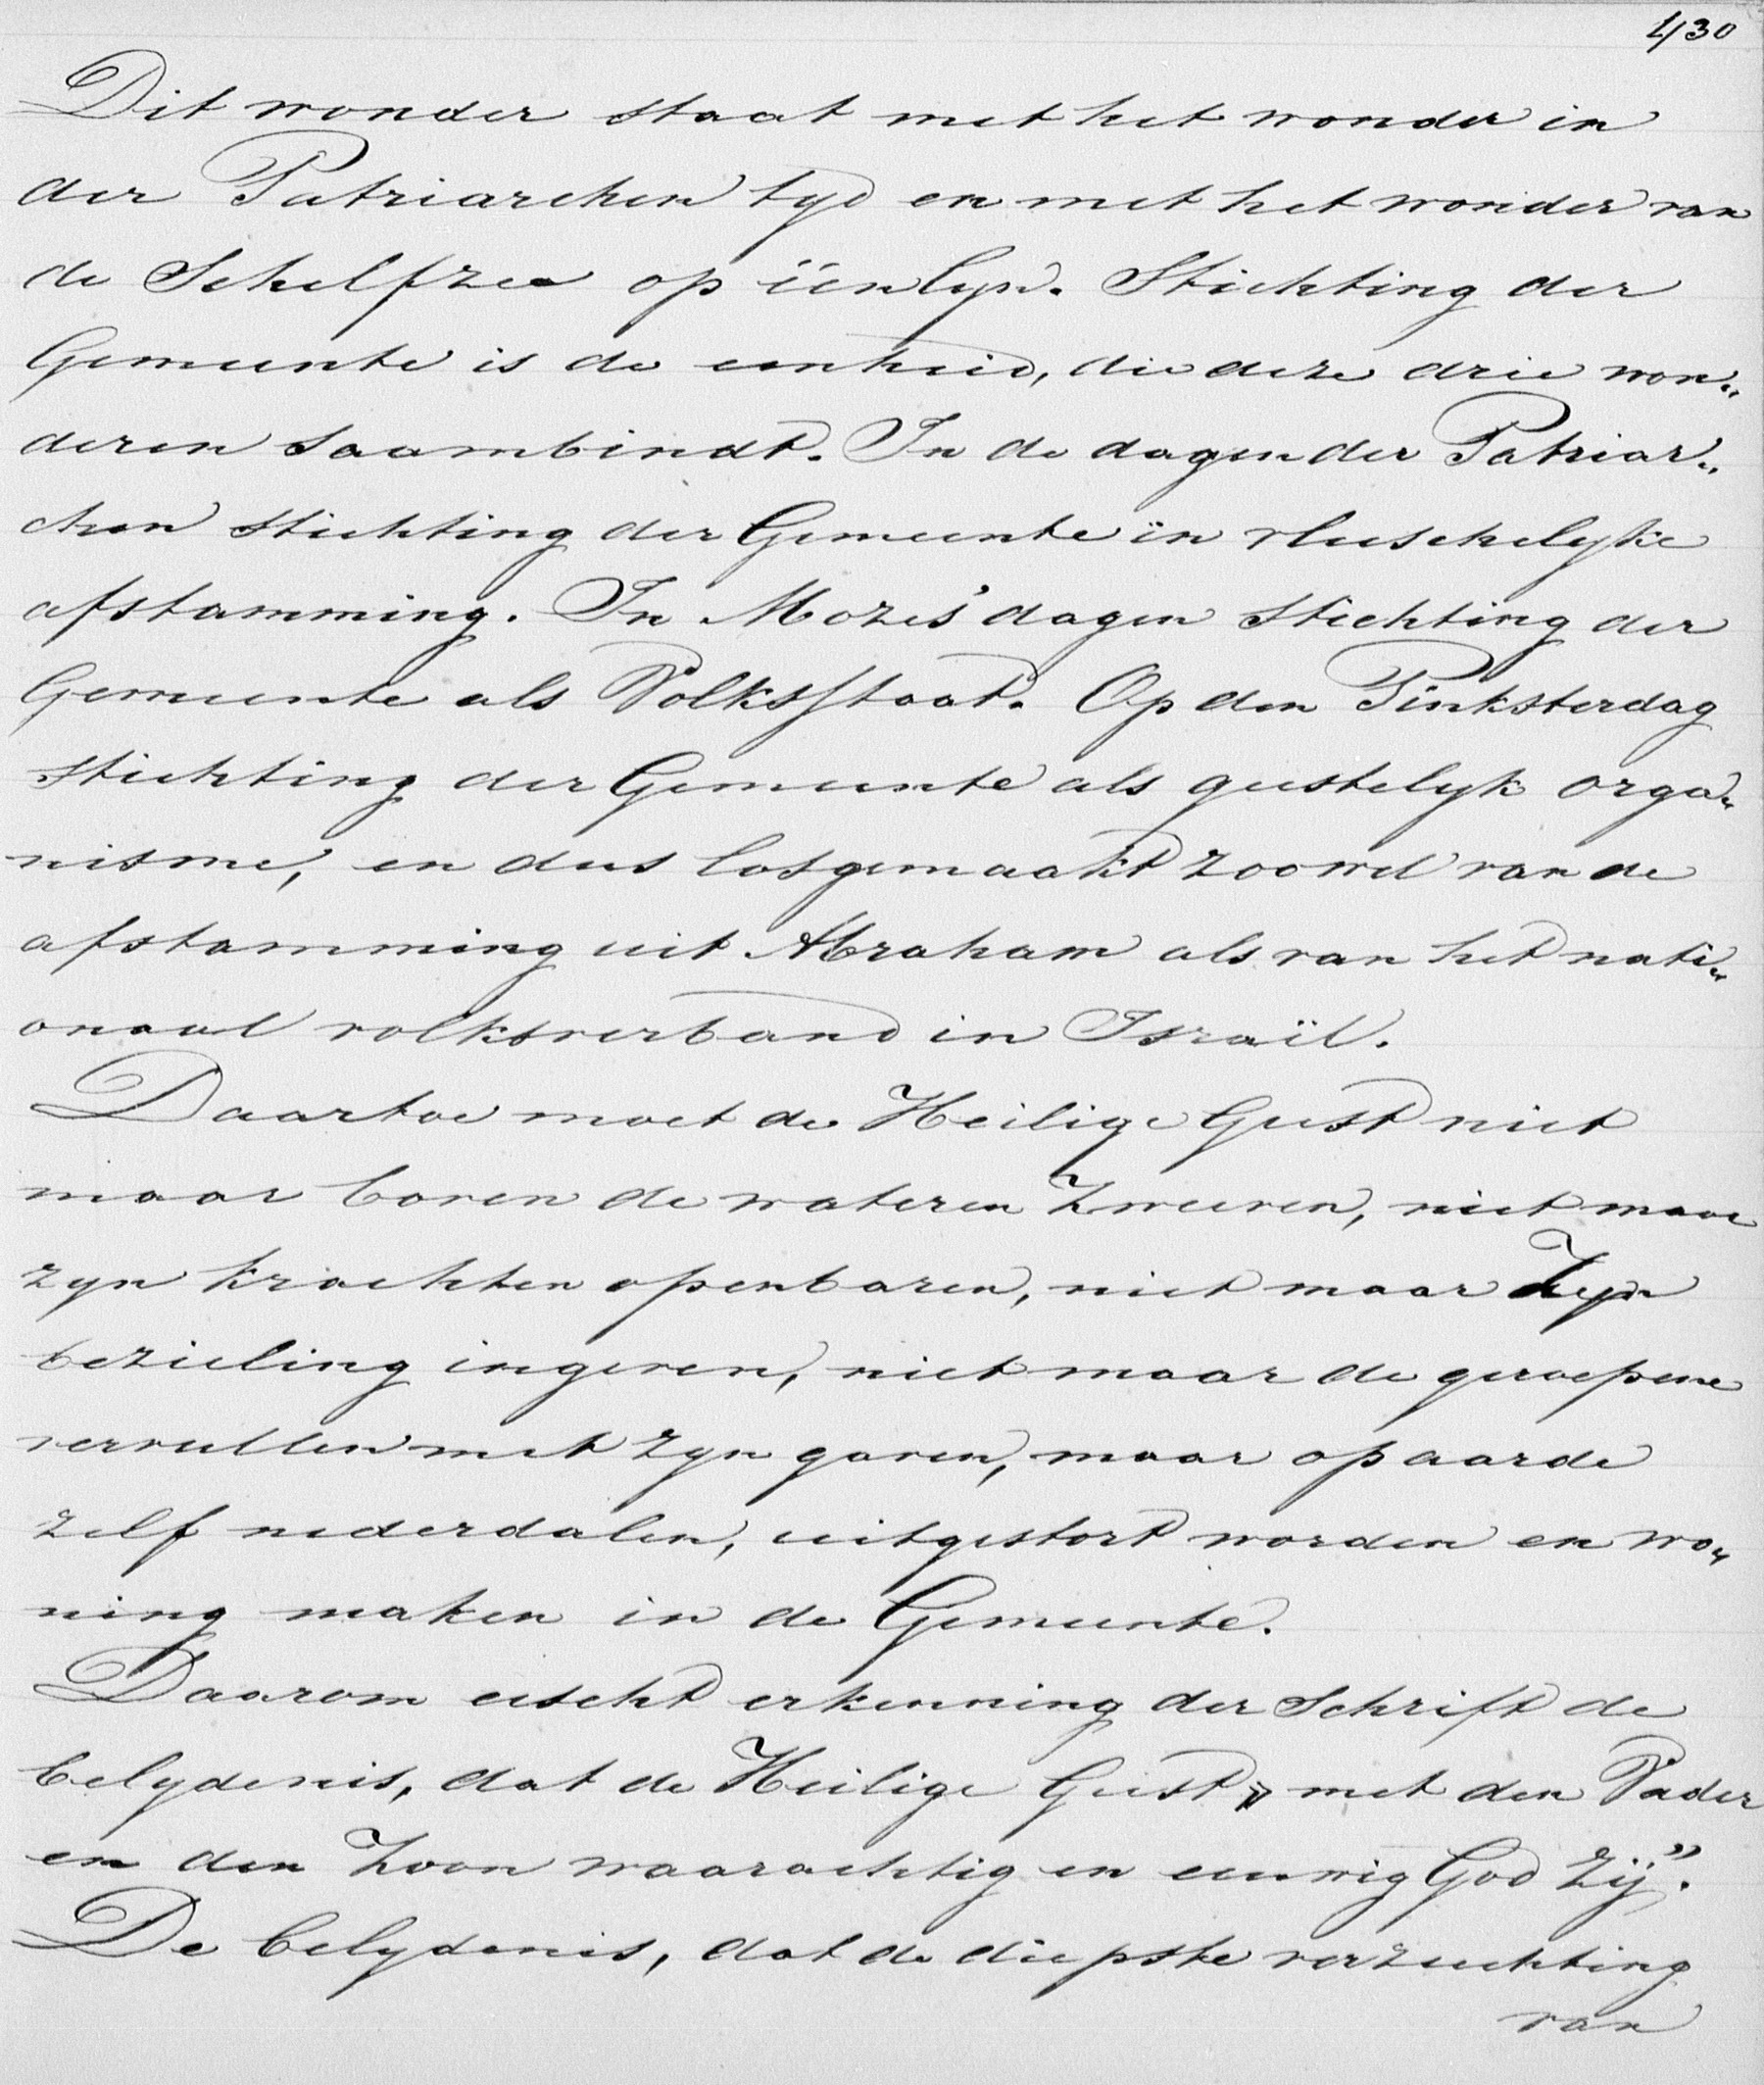 430
Dit wonder staat met het wonder in
der Patriarchen tyd en met het wonder van
de Schelfzee op één lyn. Stichting der
Gemeente is de eenheid, die deze drie won„
deren saambindt. In de dagen der Patriar„
chen stichting der Gemeente in vleeschelyke
afstamming. In Mozes' dagen stichting der
Gemeente als Volksstaat. Op den Pinksterdag
stichting der Gemeente als geestelyk orga„
nisme, en dus losgemaakt zoowel van de
afstamming uit Abraham als van het nati„
onaal volksverband in Israël.
Daartoe moet de Heilige Geest niet
maar boven de wateren zweeven, niet maar
zyn krachten openbaren, niet maar Zyn
bezieling ingeven, niet maar de geroepene
vervullen met zyn gaven, maar op aarde
zelf nederdalen, uitgestort worden en wo„
ning maken in de Gemeente.
Daarom eischt erkenning der Schrift de
belydenis, dat de Heilige Geest „ met den Vader
en den Zoon waarachtig en eeuwig God zij".
De belydenis, dat de diepste verzuchting
van